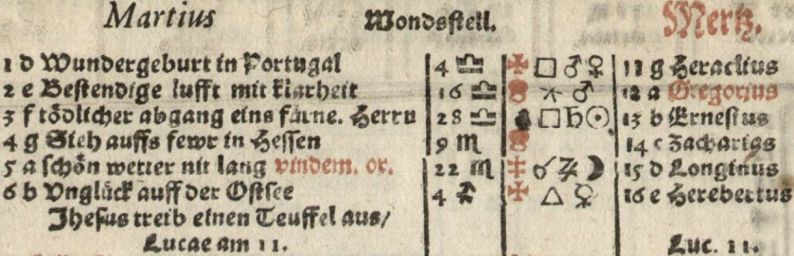 Martius Mondsstell. Mertz.
1 d Wundergeburt in Portugal 4 ♎ □ ♂ ♀ 11 g Heraclius
2 e Bestendige lufft mit klarheit 16 ♎ ⚹ ♂ 12 a Gregorius
3 f tödlicher abgang eins fürne. Herrn 28 ♎ □ ♄ ☉ 13 b Ernestus
4 g Sieh auffs fewr in Hessen 9 ♏ 14 c Zacharias
5 a schön wetter nit lang vindem. or. 22 ♏ ☌ ♃ ☽ 15 d Longinus
6 b Vnglück auff der Ostsee 4 ♐ △ ♀ 16 e Herebertus
Jhesus treib einen Teuffel aus/
Lucae am 11. Luc. 11.